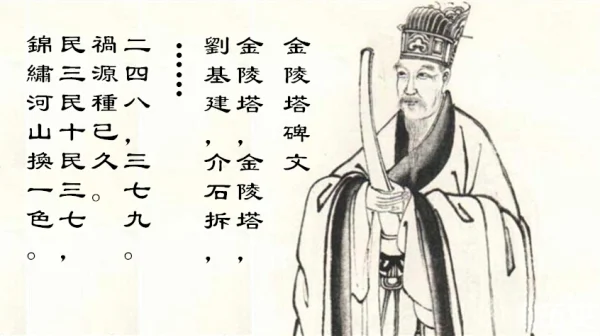 金陵塔碑文
金陵塔，金陵塔，
劉基建，介石拆，
……
二四八，三七九。
禍源種已久。
民三民十民三七，
錦繡河山換一色。